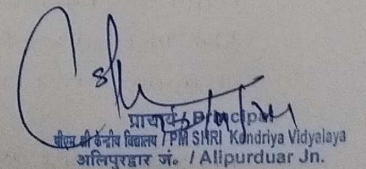 प्राचार्य / Principal
पीएम श्री केन्द्रीय विद्यालय / PM SHRI Kendriya Vidyalaya
अलिपुरद्वार जं. / Alipurduar Jn.